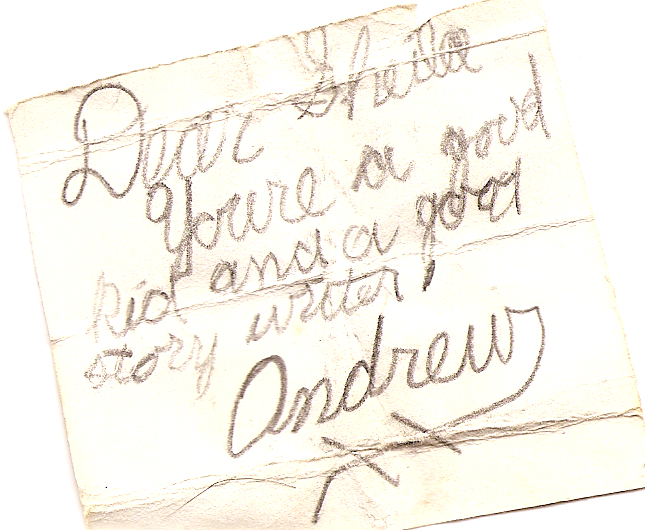 Dear Sheila
Youre a good
kid and a good
story writer,
Andrew
XX